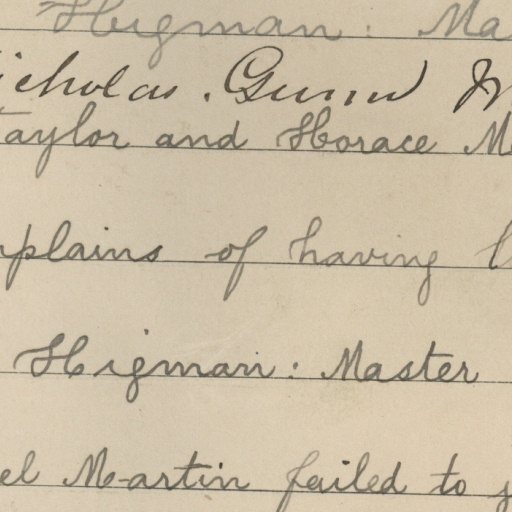 Higman: Ma
icholas. Gunn
Taylor and Horace M
plains of having
Higman: Master
el Martin failed to